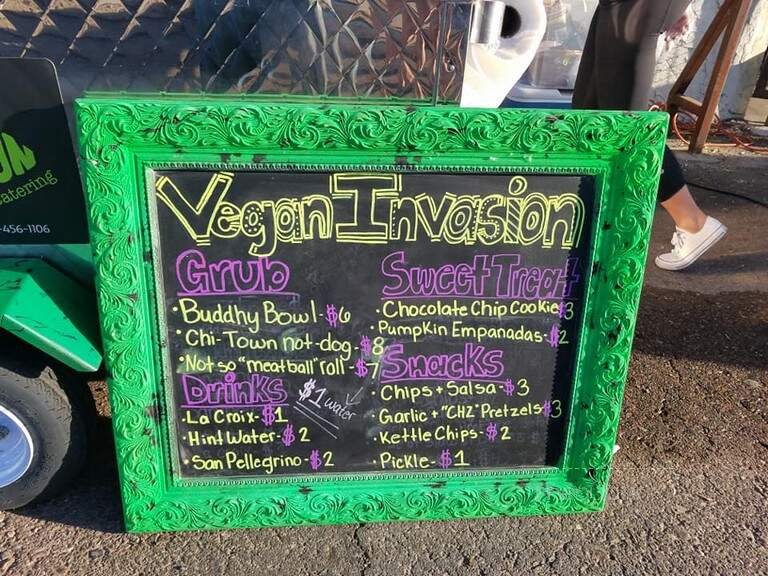 UN
catering
-456-1106
Vegan Invasion
Grub
• Buddhy Bowl - $6
• Chi-Town not-dog - $8
• Not so "meatball" roll - $7
Drinks
$1 water
• La Croix - $1
• Hint Water - $2
• San Pellegrino - $2
Sweet Treat
• Chocolate Chip Cookie $3
• Pumpkin Empanadas - $2
Snacks
• Chips + Salsa - $3
• Garlic + "CHZ" Pretzels $3
• Kettle Chips - $2
• Pickle - $1